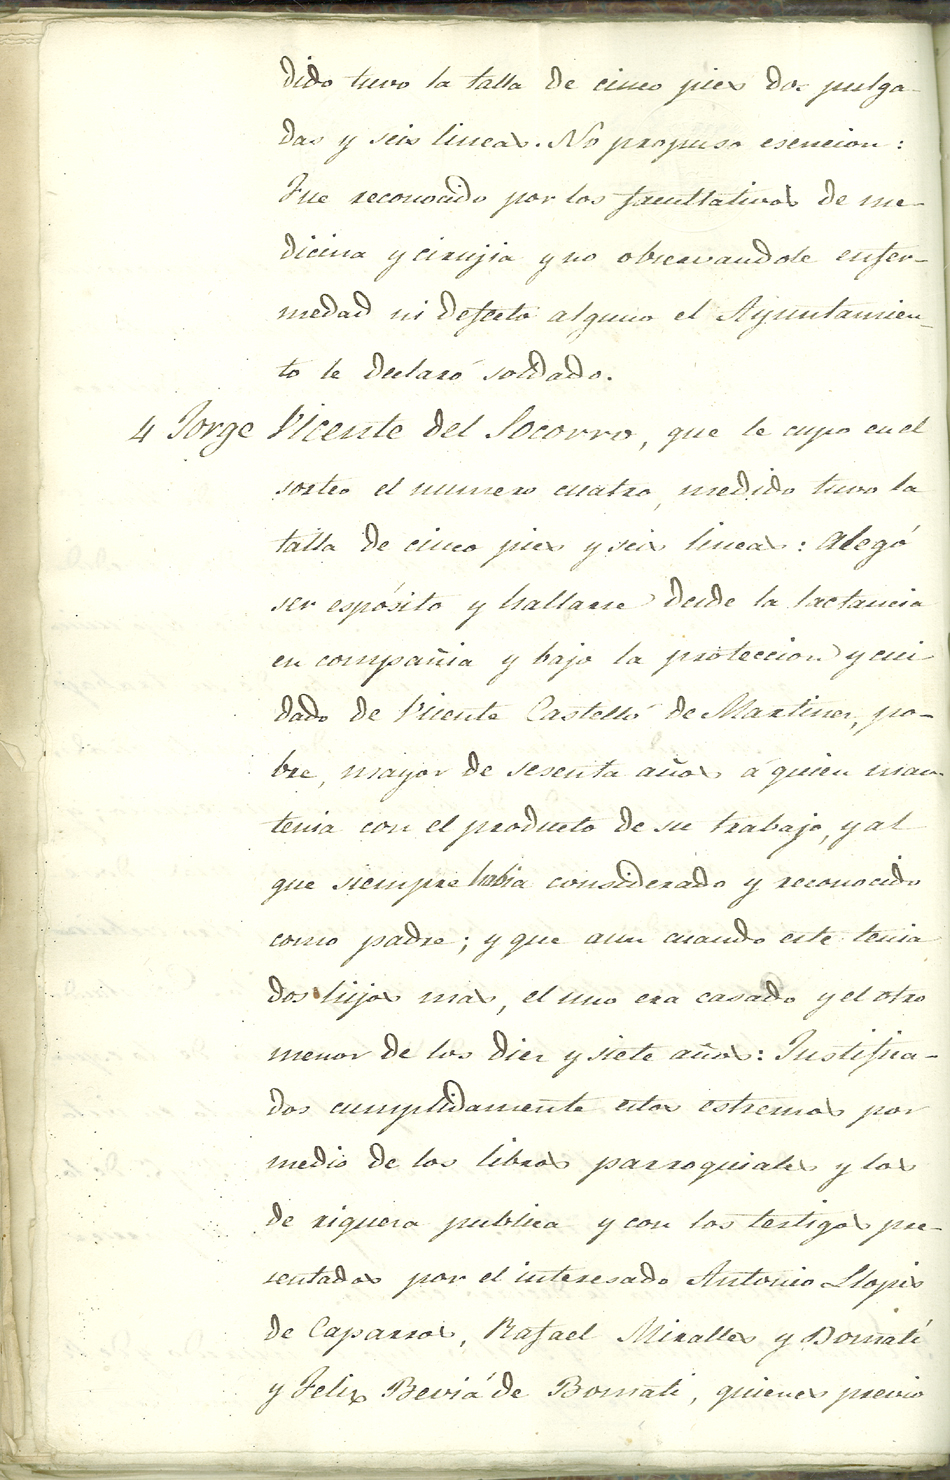 dido tuvo la talla de cinco pies dos pulga-
das y seis lineas. No propuso esencion:
Fue reconocido por los facultativos de me-
dicina y cirujia y no observandole enfer-
medad ni defecto alguno el Ayuntamien-
to le declaró soldado.
4 Jorge Vicente del Socorro, que le cupo en el
sorteo el numero cuatro, medido tuvo la
talla de cinco pies y seis lineas: Alegó
ser espósito y hallarse desde la lactancia
en compañia y bajo la proteccion y cui
dado de Vicente Castelló de Martinez, po-
bre, mayor de sesenta años á quien man-
tenia con el producto de su trabajo, y al
que siempre habia considerado y reconocido
como padre; y que aun cuando este tenia
dos hijos mas, el uno era casado y el otro
menor de los diez y siete años: Justifica-
dos cumplidamente estos estremos por
medio de los libros parroquiales y los
de riqueza publica y con los testigos pre-
sentados por el interesado Antonio Llopis
de Caparros, Rafael Miralles y Bomati
y Felix Beviá de Bomati, quienes previo